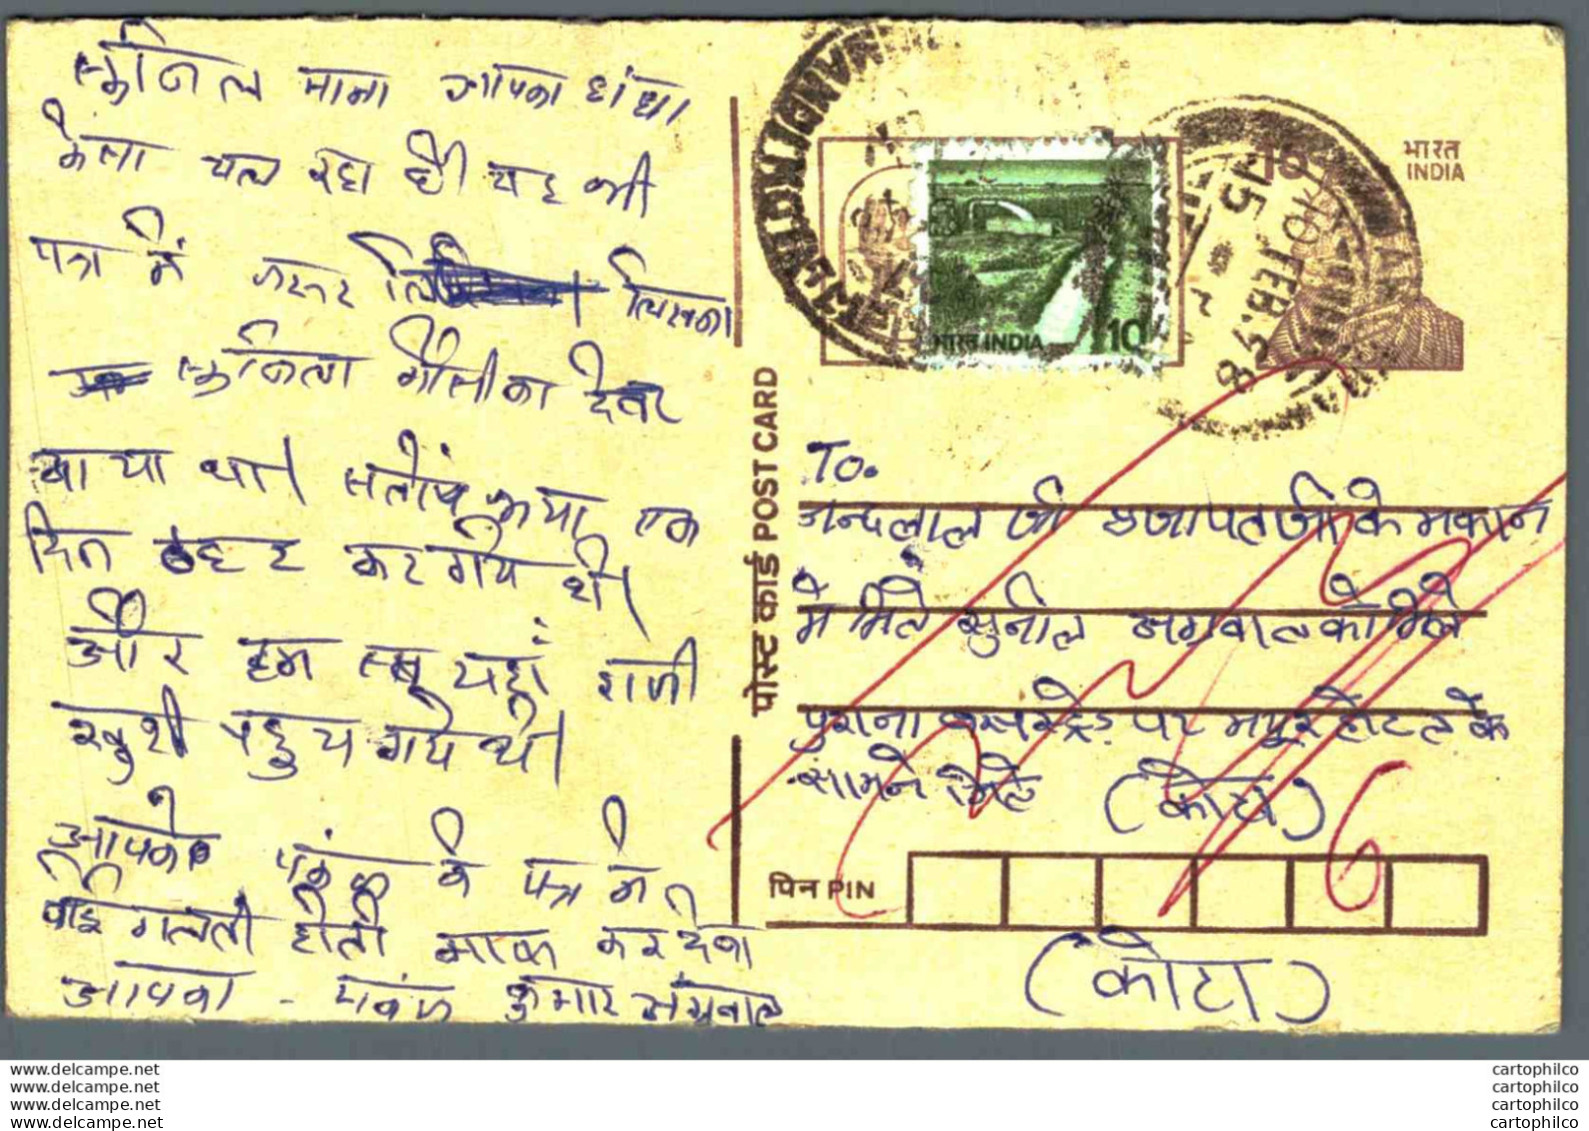 सुनिल मामा आपका धांधा
केसा चल रहा है यह भी
पत्र में जरूर लिखना
सुनिता मौसी का देवर
आया था। सतोष भया एक
दिन ठहर कर गये थे।
और हम सब यहां राजी
खुशी पहुच गये थे।
आपको पंकज के पत्र मे
कोई गलती होतो माफ कर देना
आपका - पंकज कुमार अग्रवाल
पोस्ट कार्ड POST CARD
भारत
INDIA
भारत INDIA 10
15 FEB. 98
To.
नन्दलाल जी प्रजापत जी के मकान
मे मिले सुनील अग्रवाल को मिले
पुराना बसस्टेंड पर मयूर होटल के
सामने मिले (कोटा)
6
पिन PIN
(कोटा)
www.delcampe.net
www.delcampe.net
www.delcampe.net
www.delcampe.net
cartophilco
cartophilco
cartophilco
cartophilco